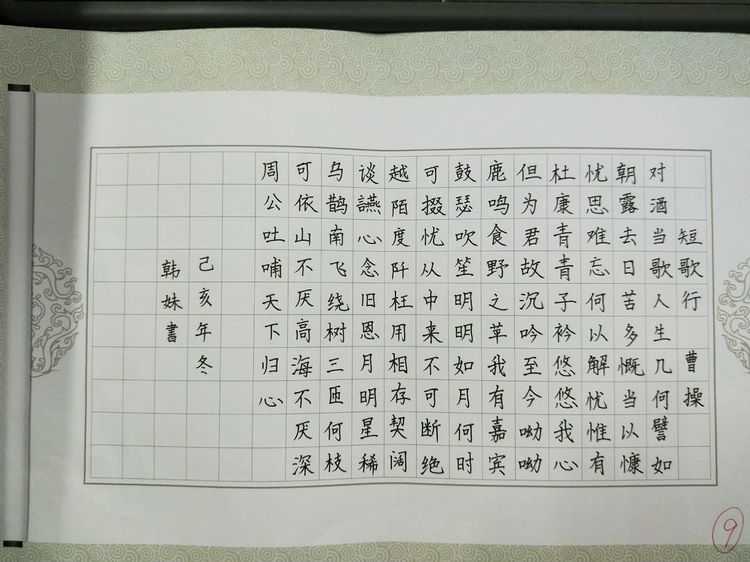 短歌行 曹操
对酒当歌人生几何譬如
朝露去日苦多慨当以慷
忧思难忘何以解忧惟有
杜康青青子衿悠悠我心
但为君故沉吟至今呦呦
鹿鸣食野之草我有嘉宾
鼓瑟吹笙明明如月何时
可掇忧从中来不可断绝
越陌度阡枉用相存契阔
谈讌心念旧恩月明星稀
乌鹊南飞绕树三匝何枝
可依山不厌高海不厌深
周公吐哺天下归心
己亥年冬
韩妹書
9